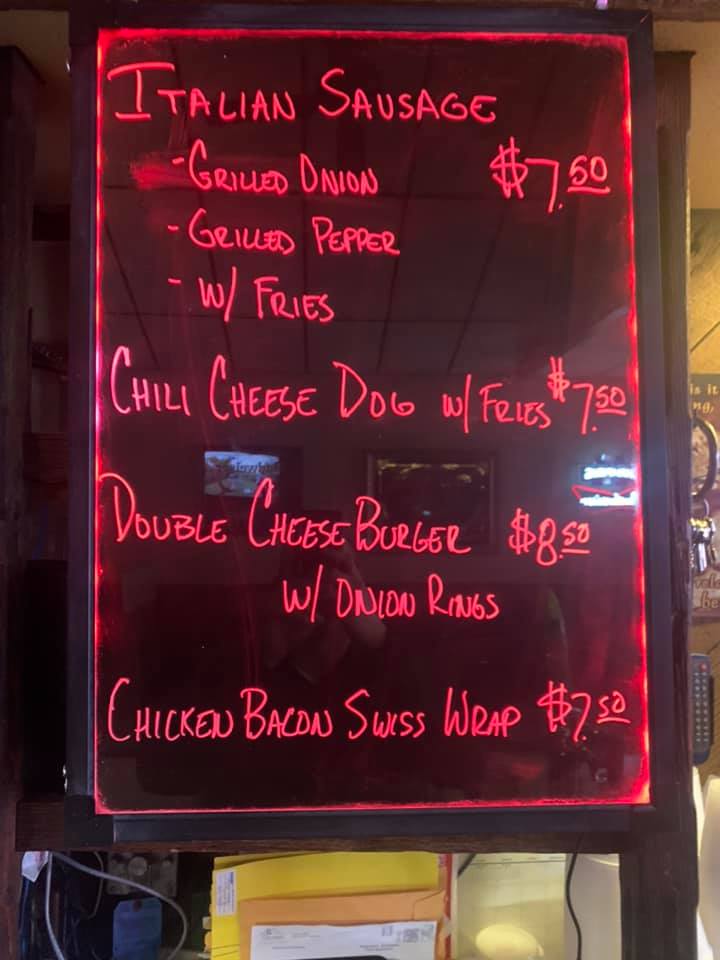 ITALIAN SAUSAGE
-GRILLED ONION $7.50
-GRILLED PEPPER
- W/ FRIES
CHILI CHEESE DOG W/ FRIES $7.50
DOUBLE CHEESE BURGER $8.50
W/ ONION RINGS
CHICKEN BACON SWISS WRAP $7.50